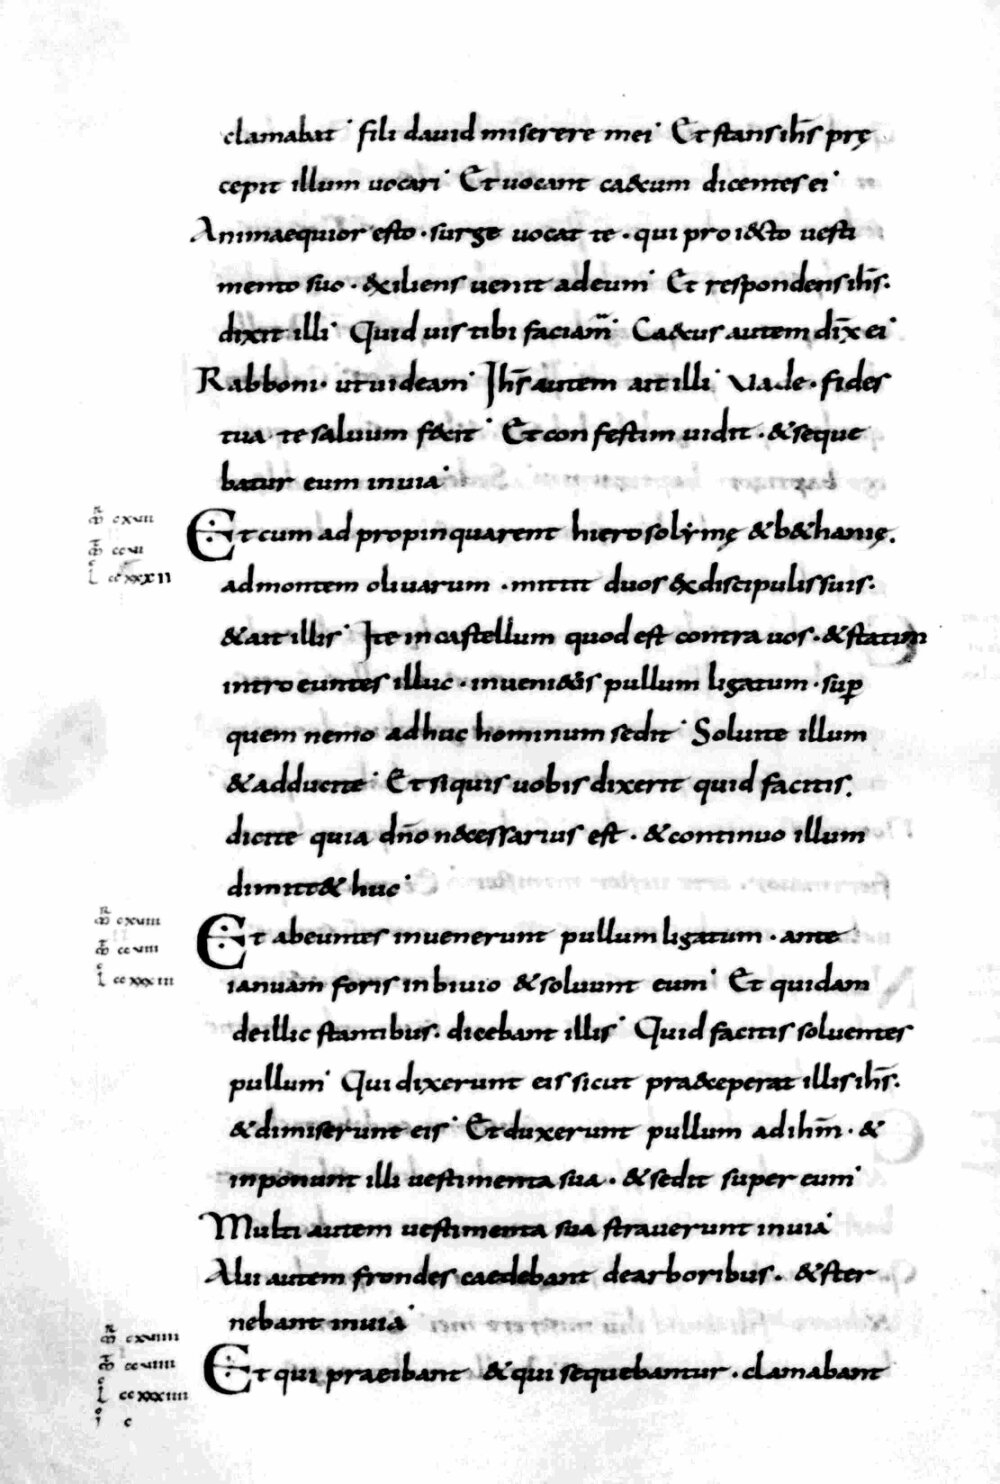 clamabat · fili dauid miserere mei · Et stans ihs̄ prę
cepit illum uocari · Et uocant caecum dicentes ei ·
Animaequior esto · surge uocat te · qui proiecto uesti
mento suo · exiliens uenit ad eum · Et respondens ihs̄ ·
dixit illi · Quid uis tibi faciam̄ · Caecus autem dix̄ ei ·
Rabboni · ut uideam · Ihs̄ autem ait illi · Vade · fides
tua te saluum fecit · Et confestim uidit · & seque
batur eum in uia ·
m̄ cxuii
Et cum adpropinquarent hierosolymę & bethanię ·
m̄ ccui
l ccxxxii
ad montem oliuarum · mittit duos ex discipulis suis ·
& ait illis · Ite in castellum quod est contra uos · & statim
intro euntes illuc · inuenietis pullum ligatum · sup̄
quem nemo adhuc hominum sedit · Soluite illum
& adducite · Et si quis uobis dixerit quid facitis ·
dicite quia dn̄o necessarius est · & continuo illum
dimittet huc ·
m̄ cxuiii
Et abeuntes inuenerunt pullum ligatum · ante
m̄ ccuiii
ianuam foris in biuio & soluunt eum · Et quidam
l ccxxxiii
de illic stantibus · dicebant illis · Quid facitis soluentes
pullum · Qui dixerunt eis sicut praeceperat illis ihs̄ ·
& dimiserunt eis · Et duxerunt pullum ad ihm̄ · &
inponunt illi uestimenta sua · & sedit super eum ·
Multi autem uestimenta sua strauerunt in uia ·
Alii autem frondes caedebant de arboribus · & ster
nebant in uia ·
m̄ cxuiiii
m̄ ccuiiii
Et qui praeibant & qui sequebantur · clamabant
l ccxxxiiii
i c